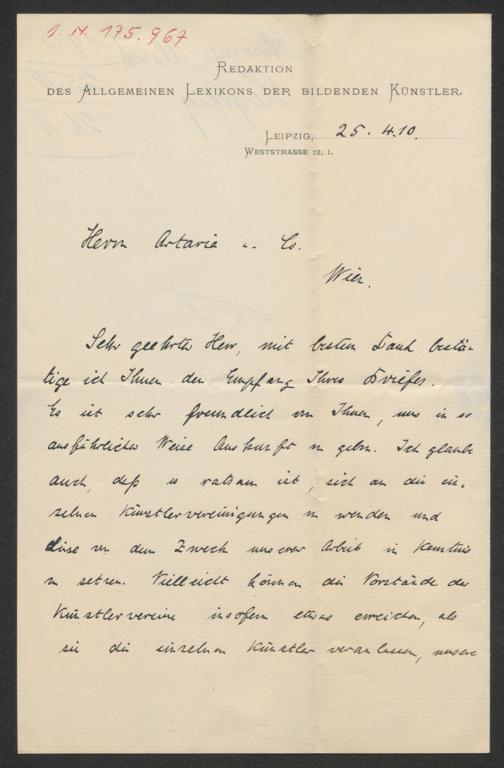 I. N. 175.967
REDAKTION
DES ALLGEMEINEN LEXIKONS DER BILDENDEN KÜNSTLER.
LEIPZIG, 25. 4. 10.
WESTSTRASSE 12, I.
Herrn Artaria u. Co.
Wien.
Sehr geehrter Herr, mit bestem Dank bestä-
tige ich Ihnen den Empfang Ihres Briefes.
Es ist sehr freundlich von Ihnen, uns in so
ausführlicher Weise Auskunft zu geben. Ich glaube
auch, daß es ratsam ist, sich an die ein-
zelnen Künstlervereinigungen zu wenden und
diese von dem Zweck unserer Arbeit in Kenntnis
zu setzen. Vielleicht können die Vorstände der
Künstlervereine insofern etwas erreichen, als
sie die einzelnen Künstler veranlassen, unsere